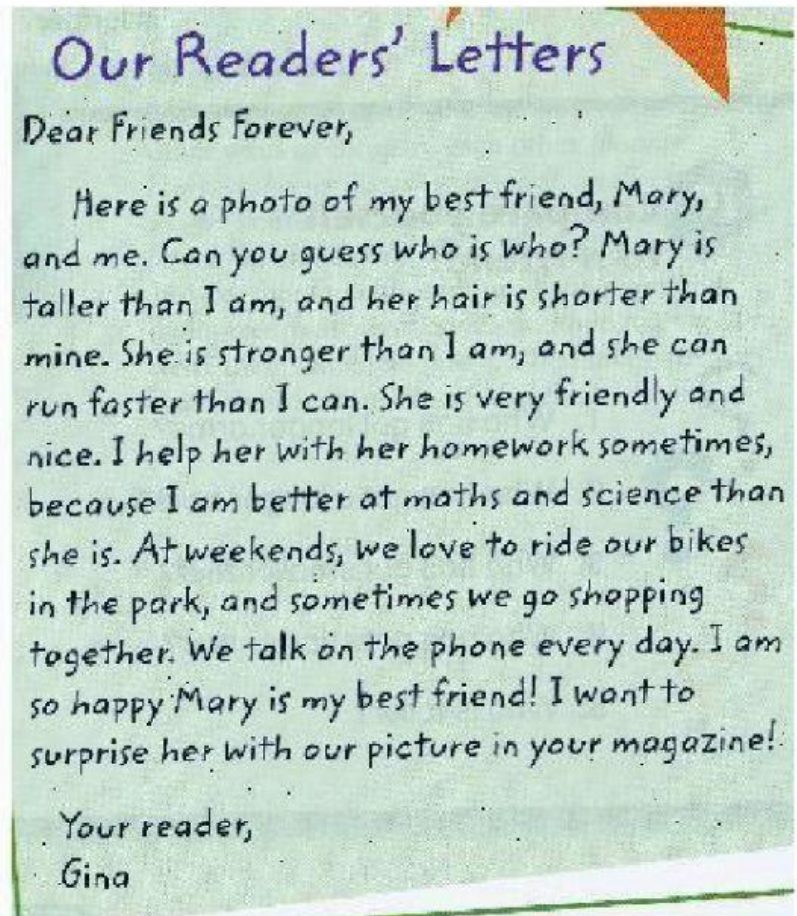 Our Readers' Letters
Dear Friends Forever,
Here is a photo of my best friend, Mary,
and me. Can you guess who is who? Mary is
taller than I am, and her hair is shorter than
mine. She is stronger than I am, and she can
run faster than I can. She is very friendly and
nice. I help her with her homework sometimes,
because I am better at maths and science than
she is. At weekends, we love to ride our bikes
in the park, and sometimes we go shopping
together. We talk on the phone every day. I am
so happy Mary is my best friend! I want to
surprise her with our picture in your magazine!
Your reader,
Gina